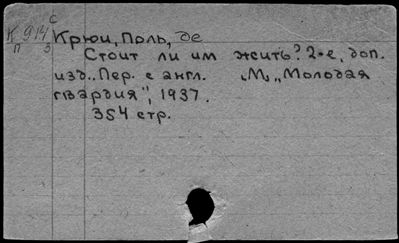 С
К 914 Крюи, Поль, де
П 3
Стоит ли им жить? 2-е, доп.
изд., Пер. с англ. М., „Молодая
гвардия", 1937.
354 стр.